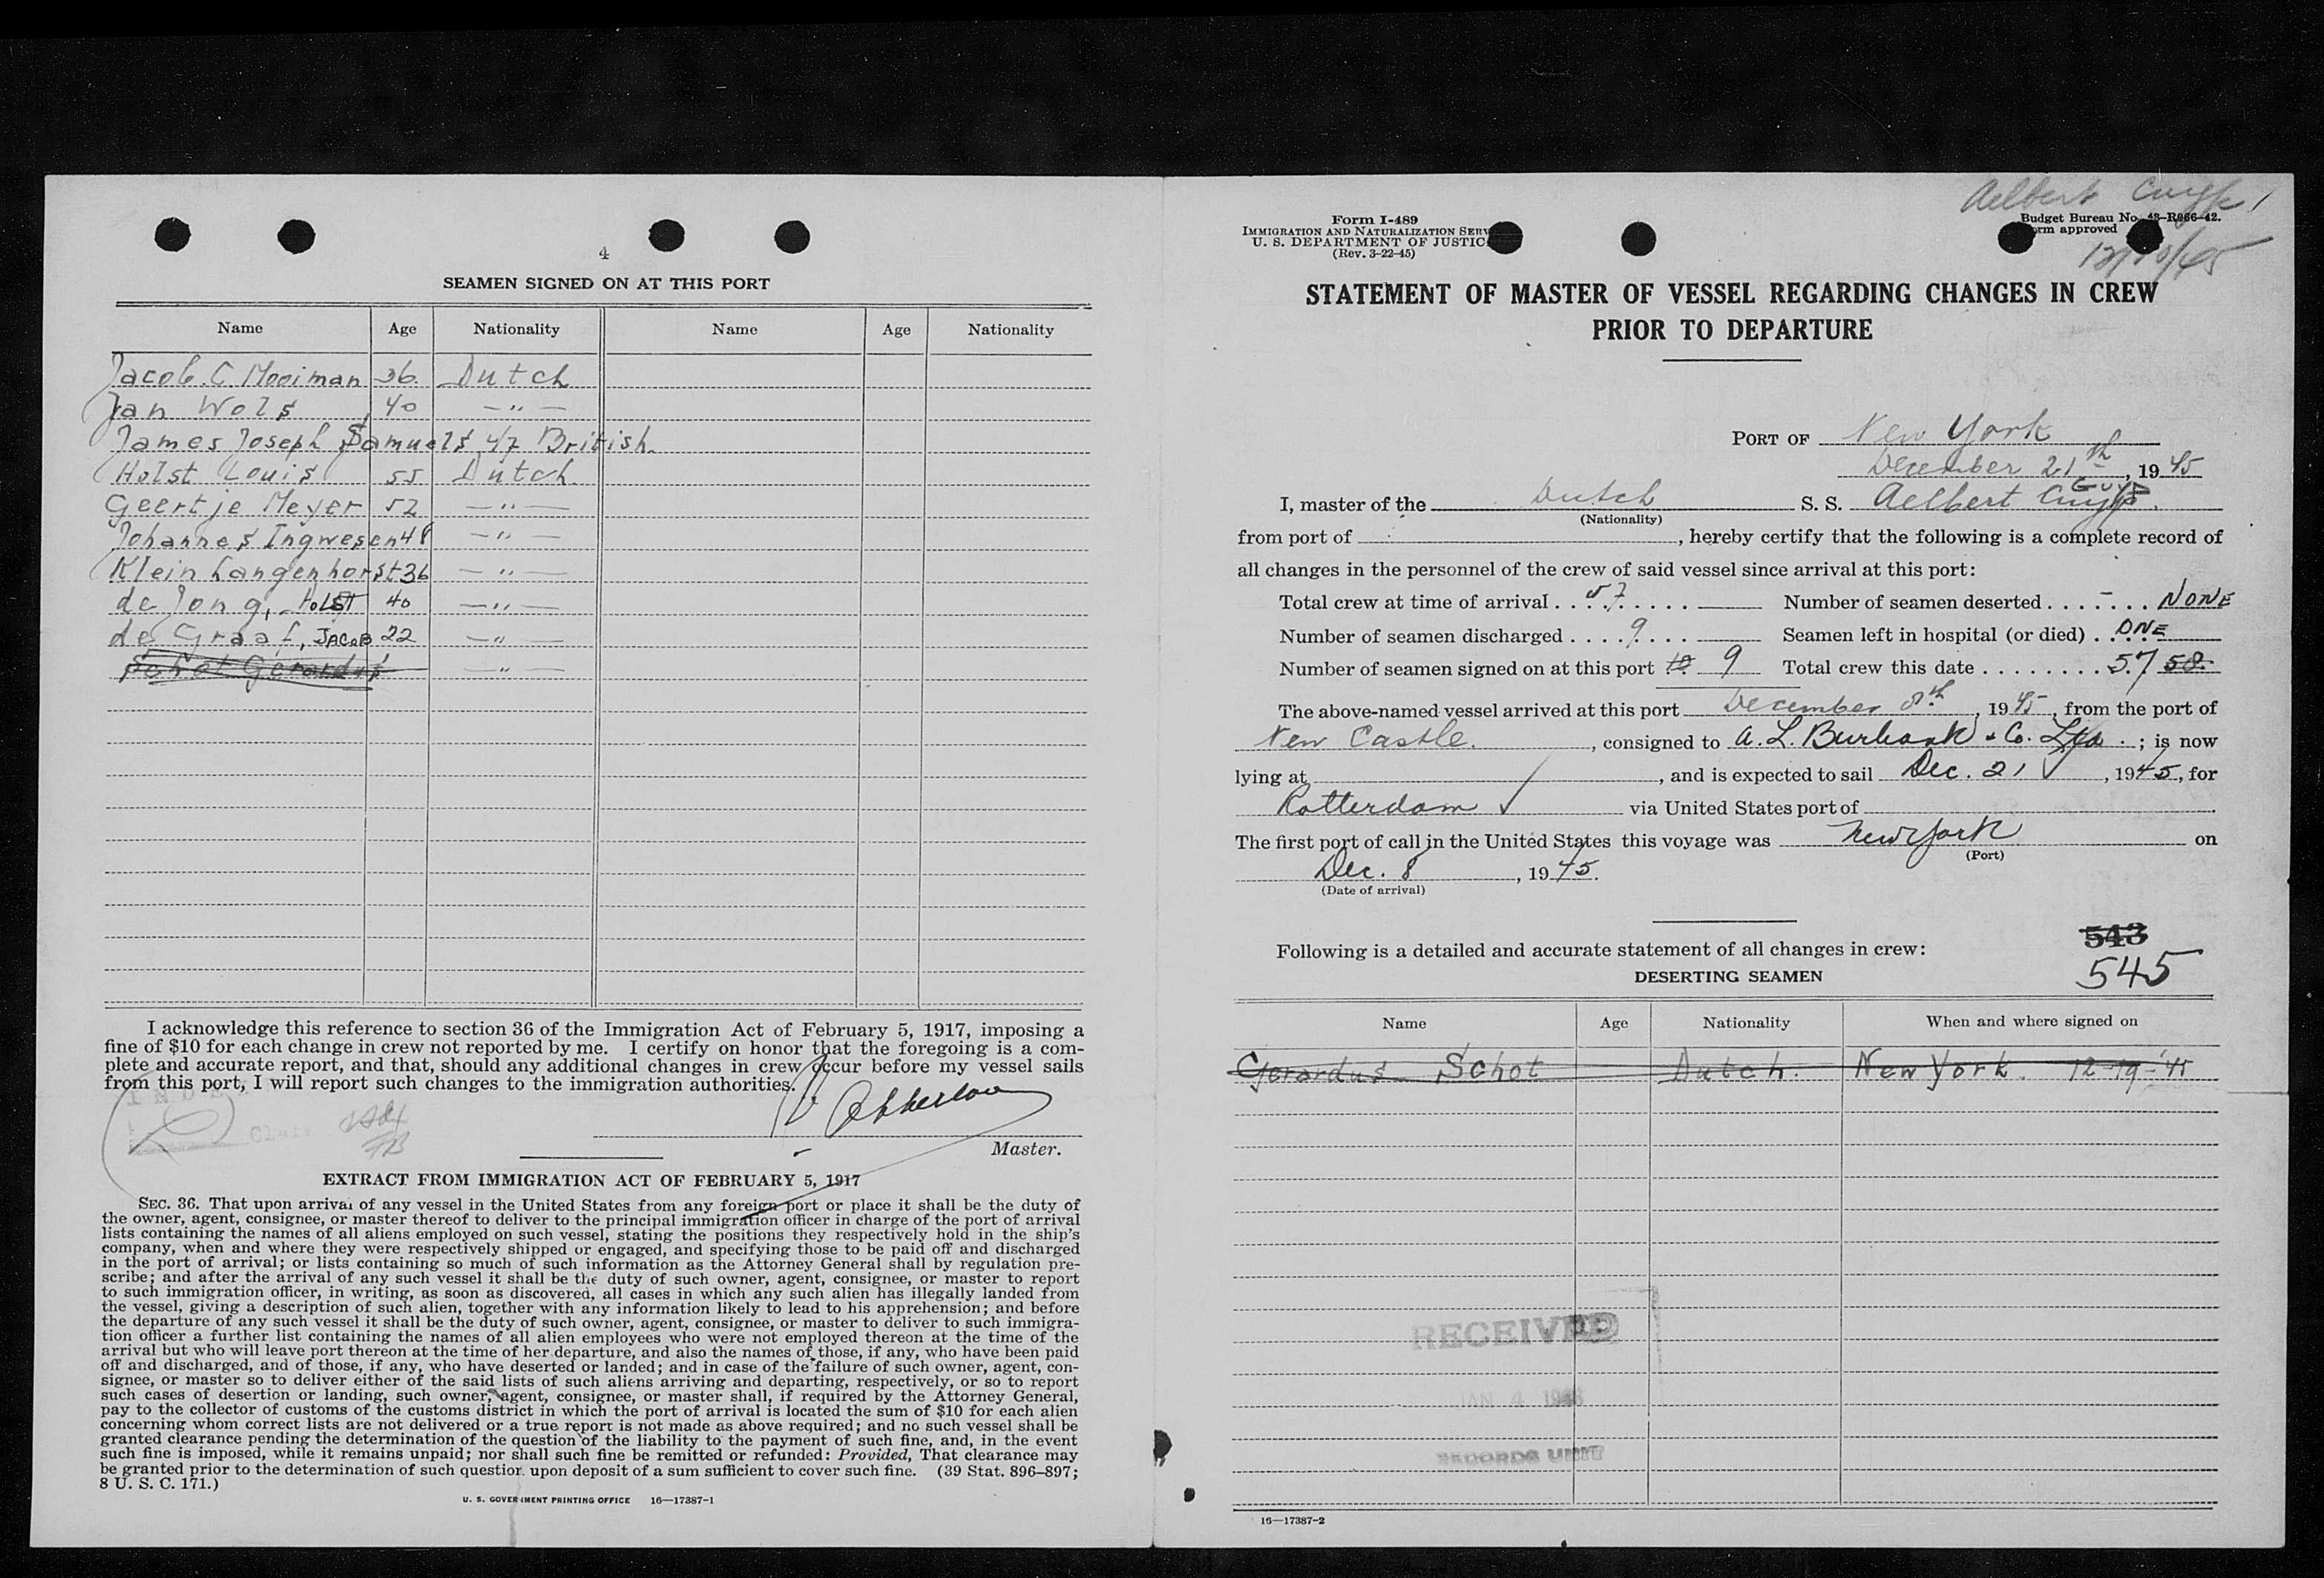 4
SEAMEN SIGNED ON AT THIS PORT
Name Age Nationality Name Age Nationality
Jacob. C. Mooiman 36 Dutch
Jan Wols 40 — " —
James Joseph Samuels 47 British.
Holst Louis 55 Dutch
Geertje Meyer 52 — " —
Johannes Ingwesen 48 — " —
Klein Langenhorst 36 — " —
de Jong, HOLST 40 — " —
de Graaf, JACOB 22 — " —
Schot Gerardus — " —
I acknowledge this reference to section 36 of the Immigration Act of February 5, 1917, imposing a
fine of $10 for each change in crew not reported by me. I certify on honor that the foregoing is a com-
plete and accurate report, and that, should any additional changes in crew occur before my vessel sails
from this port, I will report such changes to the immigration authorities.
Master.
EXTRACT FROM IMMIGRATION ACT OF FEBRUARY 5, 1917
SEC. 36. That upon arrival of any vessel in the United States from any foreign port or place it shall be the duty of
the owner, agent, consignee, or master thereof to deliver to the principal immigration officer in charge of the port of arrival
lists containing the names of all aliens employed on such vessel, stating the positions they respectively hold in the ship's
company, when and where they were respectively shipped or engaged, and specifying those to be paid off and discharged
in the port of arrival; or lists containing so much of such information as the Attorney General shall by regulation pre-
scribe; and after the arrival of any such vessel it shall be the duty of such owner, agent, consignee, or master to report
to such immigration officer, in writing, as soon as discovered, all cases in which any such alien has illegally landed from
the vessel, giving a description of such alien, together with any information likely to lead to his apprehension; and before
the departure of any such vessel it shall be the duty of such owner, agent, consignee, or master to deliver to such immigra-
tion officer a further list containing the names of all alien employees who were not employed thereon at the time of the
arrival but who will leave port thereon at the time of her departure, and also the names of those, if any, who have been paid
off and discharged, and of those, if any, who have deserted or landed; and in case of the failure of such owner, agent, con-
signee, or master so to deliver either of the said lists of such aliens arriving and departing, respectively, or so to report
such cases of desertion or landing, such owner, agent, consignee, or master shall, if required by the Attorney General,
pay to the collector of customs of the customs district in which the port of arrival is located the sum of $10 for each alien
concerning whom correct lists are not delivered or a true report is not made as above required; and no such vessel shall be
granted clearance pending the determination of the question of the liability to the payment of such fine, and, in the event
such fine is imposed, while it remains unpaid; nor shall such fine be remitted or refunded: Provided, That clearance may
be granted prior to the determination of such question upon deposit of a sum sufficient to cover such fine. (39 Stat. 896–897;
8 U. S. C. 171.)
U. S. GOVERNMENT PRINTING OFFICE 16—17387-1
Aelbert Cuyp
Form I-489
IMMIGRATION AND NATURALIZATION SERV
U. S. DEPARTMENT OF JUSTIC
(Rev. 3-22-45)
Budget Bureau No. 43-R066-42.
orm approved
STATEMENT OF MASTER OF VESSEL REGARDING CHANGES IN CREW
PRIOR TO DEPARTURE
PORT OF New York
December 21th, 1945
I, master of the Dutch S. S. Aelbert Cuyp. CUYP
(Nationality)
from port of , hereby certify that the following is a complete record of
all changes in the personnel of the crew of said vessel since arrival at this port:
Total crew at time of arrival 57 Number of seamen deserted - NONE
Number of seamen discharged 9 Seamen left in hospital (or died) ONE
Number of seamen signed on at this port 10 9 Total crew this date 57 58
The above-named vessel arrived at this port December 8th, 1945, from the port of
New Castle. , consigned to A. L. Burbank & Co. Ltd. ; is now
lying at , and is expected to sail Dec. 21, 1945, for
Rotterdam via United States port of
The first port of call in the United States this voyage was New York on
(Port)
Dec. 8, 1945.
(Date of arrival)
543
Following is a detailed and accurate statement of all changes in crew:
545
DESERTING SEAMEN
Name Age Nationality When and where signed on
Gerardus Schot Dutch. New York. 12-19-'45
RECEIVED
JAN 4 1946
RECORDS UNIT
16—17387-2